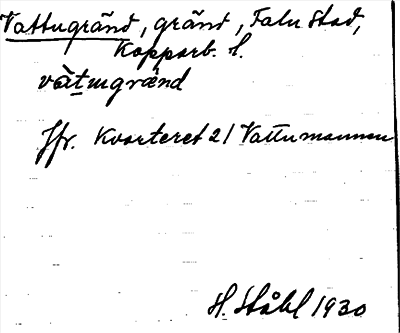 Vattugränd, gränd, Falu stad,
Kopparb. l.
vàtugränd
Jfr. Kvarteret 21 Vattumannen
H. Ståhl 1930